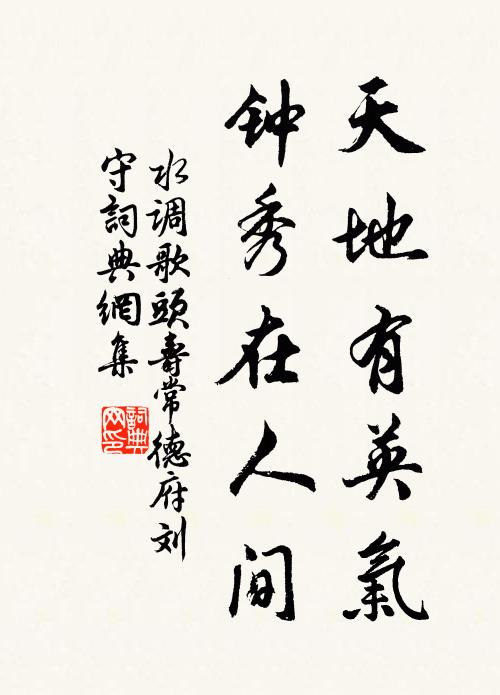 天地有英氣
钟秀在人间
水调歌頭壽常德府刘
守詞典網集
詞典
网印